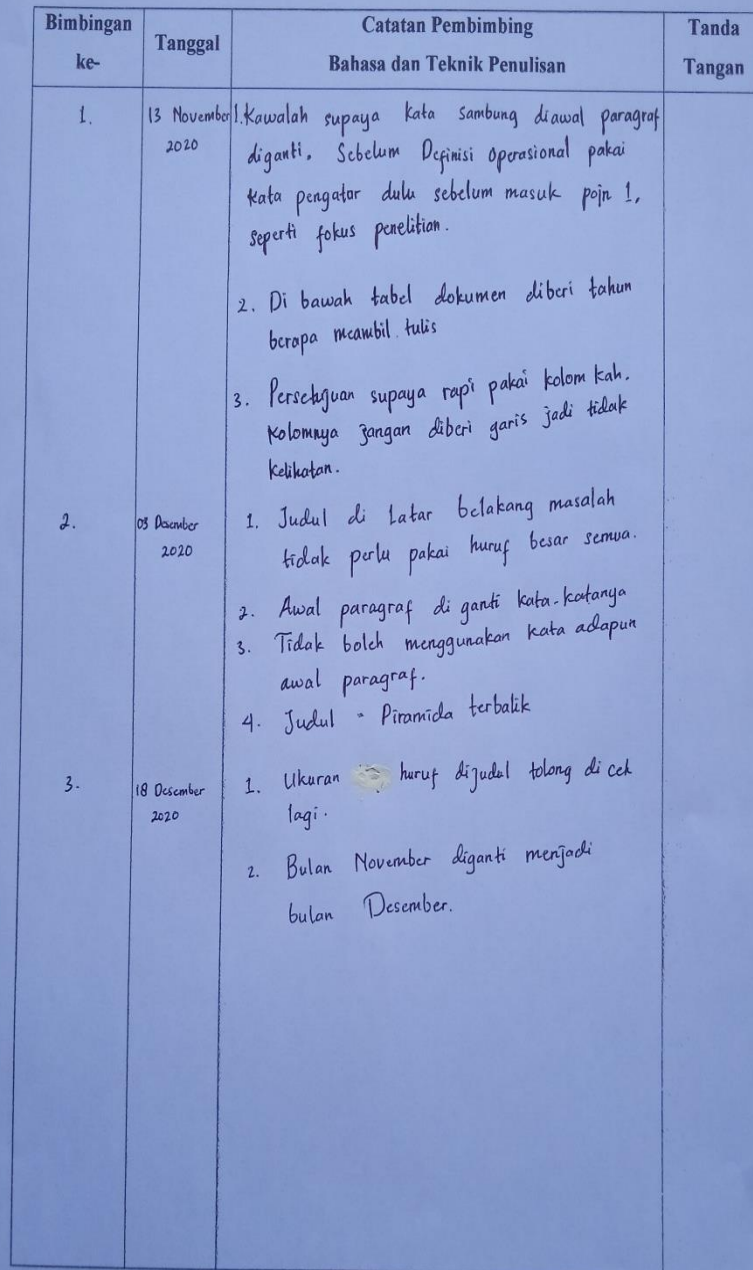 Bimbingan ke-
Tanggal
Catatan Pembimbing
Bahasa dan Teknik Penulisan
Tanda Tangan
1.
13 November 2020
1. Kawalah supaya kata sambung diawal paragraf
diganti. Sebelum Definisi Operasional pakai
kata pengatar dulu sebelum masuk poin 1,
seperti fokus penelitian.
2. Di bawah tabel dokumen diberi tahun
berapa meambil tulis
3. Persetujuan supaya rapi pakai kolom kah.
Kolomnya jangan diberi garis jadi tidak
kelihatan.
2.
03 Desember 2020
1. Judul di Latar belakang masalah
tidak perlu pakai huruf besar semua.
2. Awal paragraf di ganti kata-katanya
3. Tidak boleh menggunakan kata adapun
awal paragraf.
4. Judul - Piramida terbalik
3.
18 Desember 2020
1. Ukuran huruf dijudul tolong di cek
lagi.
2. Bulan November diganti menjadi
bulan Desember.